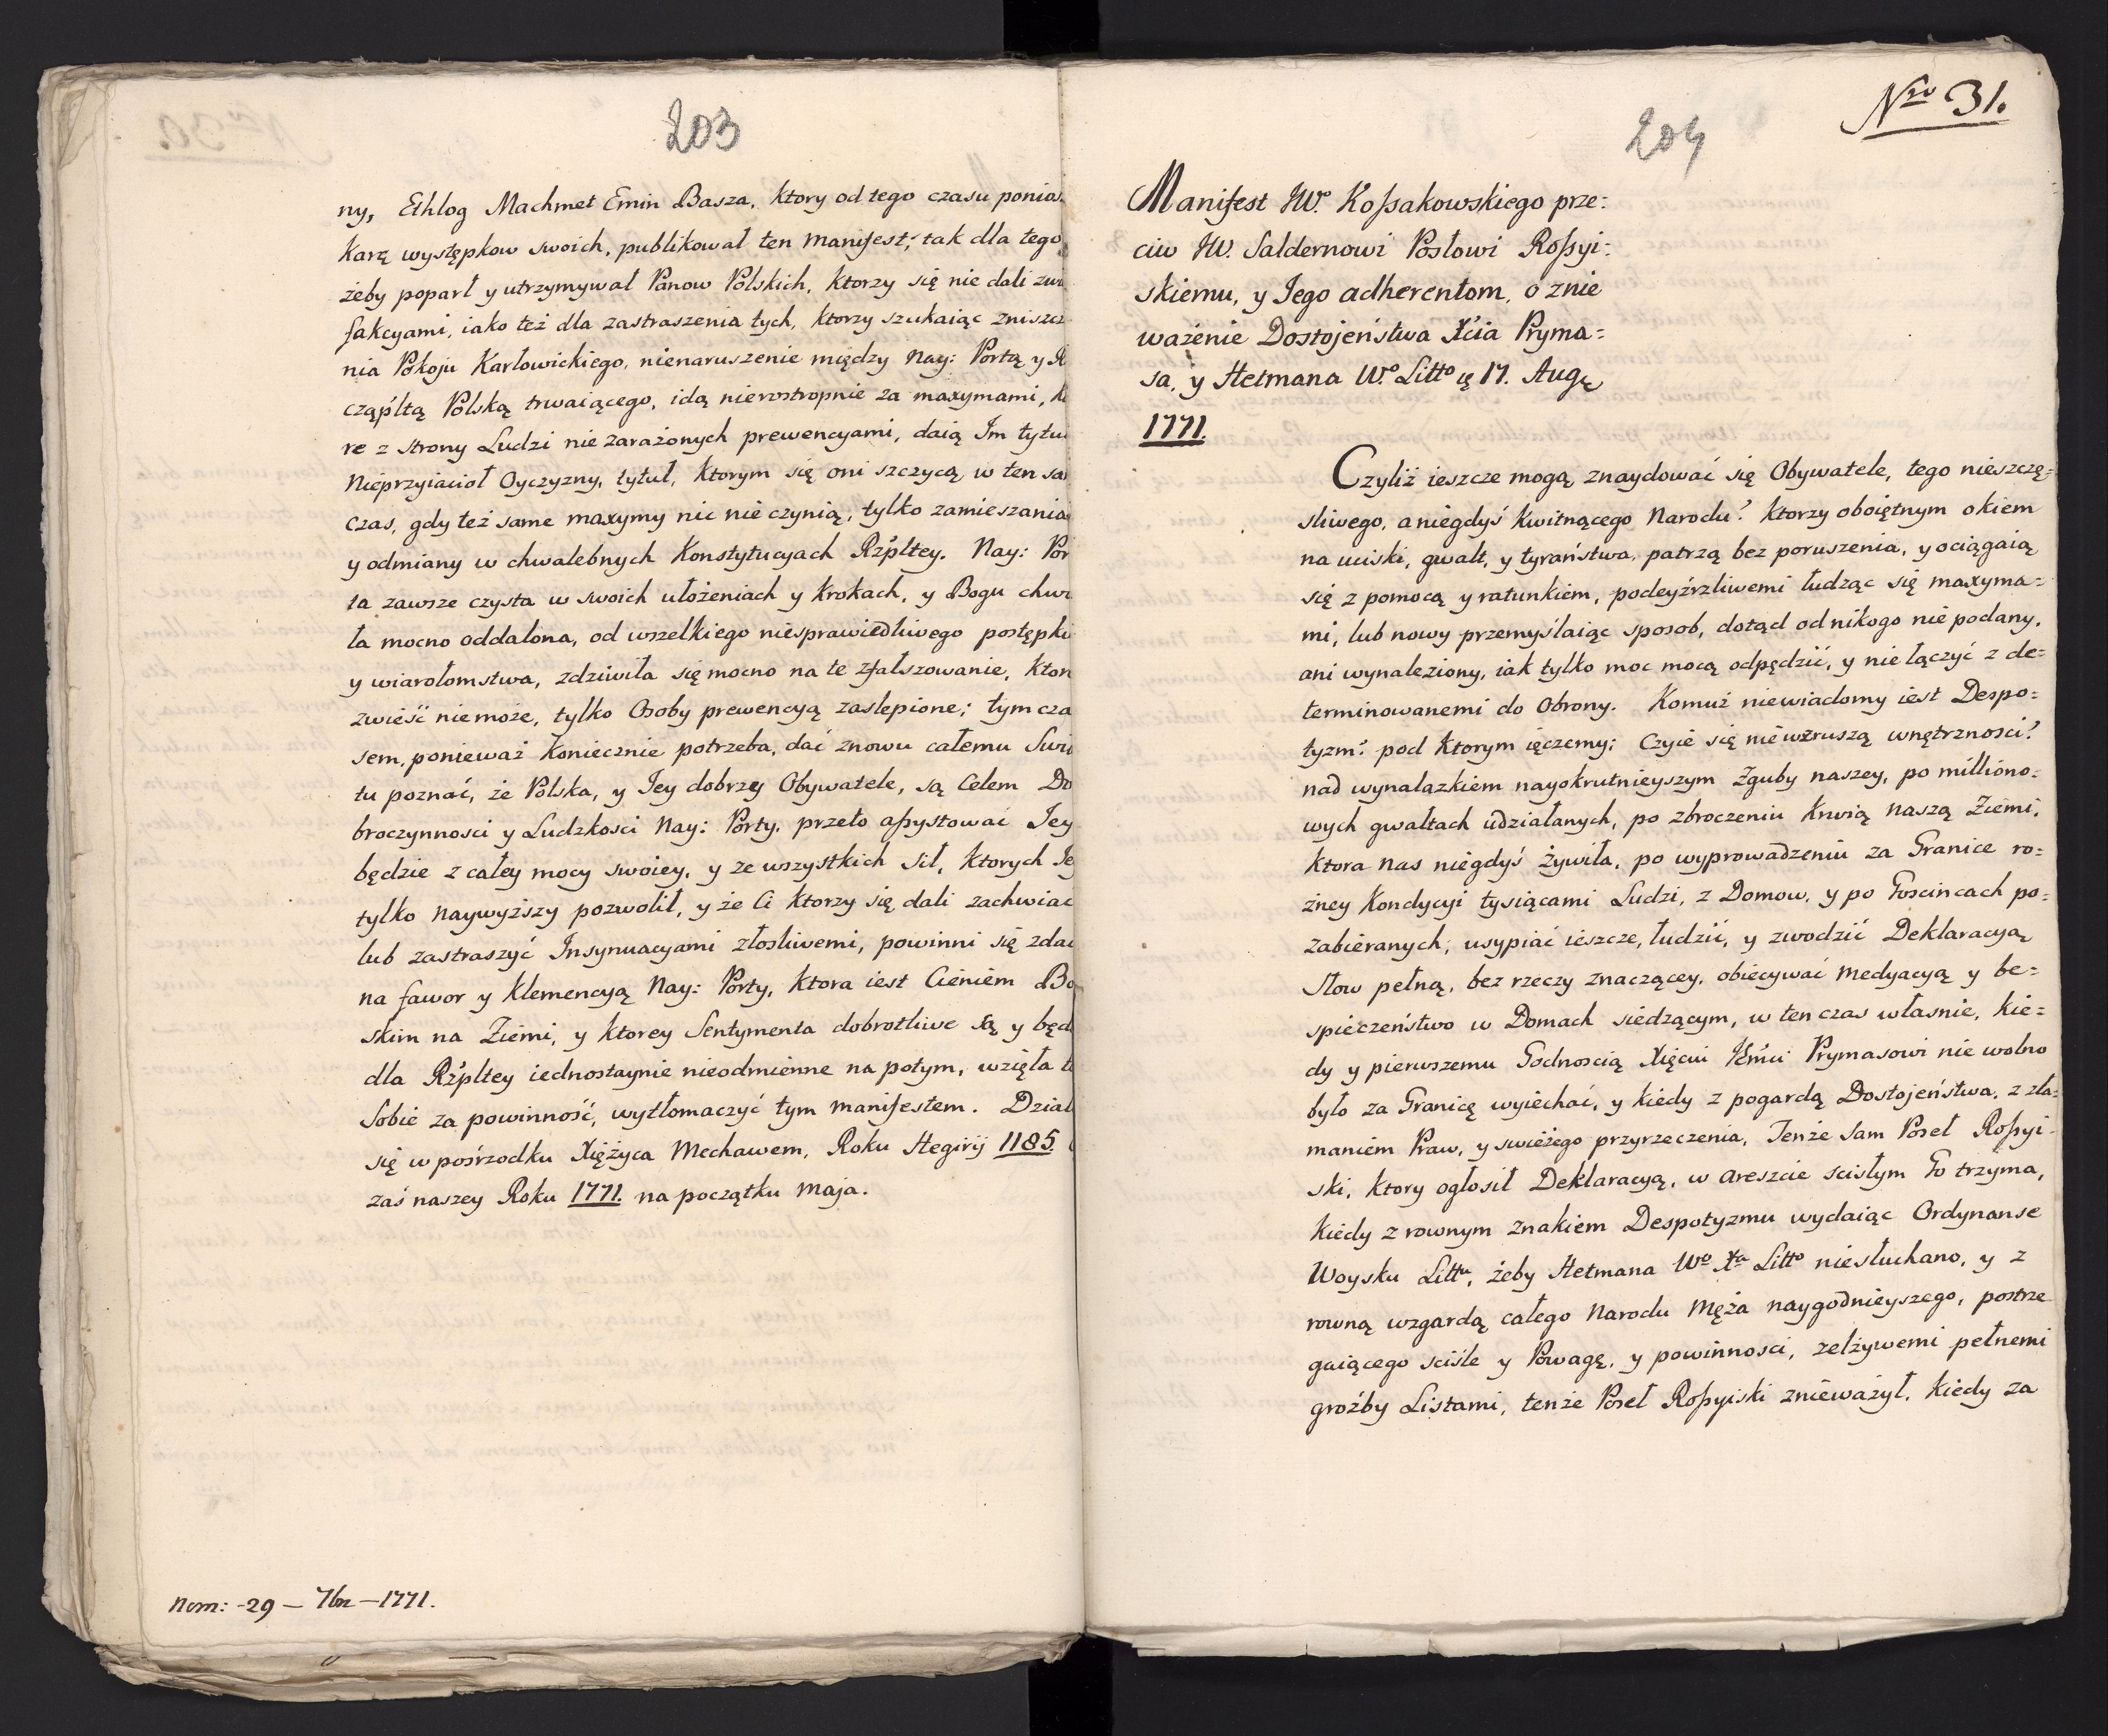 203
ny, Ethlog Machmet Emin Basza, ktory od tego czasu ponios
karę występkow swoich, publikował ten manifest; tak dla tego
żeby poparł y utrzymywał Panow Polskich, ktorzy się nie dali
fakcyami, iako też dla zastraszenia tych, ktorzy szukaiąc zniszcz
nia Pokoju Karłowickiego, nienaruszenie między Nay: Portą y R
cząpltą Polską trwaiącego, idą nieroztropnie za maxymami, k
re z strony Ludzi nie zarażonych prewencyami, daią Im tytuł
Nieprzyiacioł Oyczyzny, tytuł, ktorym się oni szczycą w ten sa
czas, gdy też same maxymy nic nie czynią, tylko zamieszania
y odmiany w chwalebnych Konstytucyach Rzpltey. Nay: Por
ta zawsze czysta w swoich ułożeniach y krokach, y Bogu chwa
ła mocno oddalona, od wszelkiego niesprawiedliwego postępku
y wiarołomstwa, zdziwiła się mocno na te zfałszowanie, ktore
zwieść niemoże, tylko Osoby prewencyą zaslepione; tym cza
sem, ponieważ koniecznie potrzeba, dać znowu całemu Swia
tu poznać, że Polska, y Jey dobrzy Obywatele, są Celem Do
broczynnosci y Ludzkosci Nay: Porty, przeto assystować Jey
będzie z całey mocy swoiey, y ze wszystkich Sił, ktorych Je
tylko Naywyższy pozwolił, y że Ci ktorzy się dali zachwiać
lub zastraszyć Insynuacyami złosliwemi, powinni się zdać
na fawor y Klemencyą Nay: Porty, ktora iest Cieniem Bo
skim na Ziemi, y ktorey Sentymenta dobrotliwe są y będ
dla Rzpltey iednostaynie nieodmienne na potym, wzięła t
Sobie za powinność, wytłomaczyć tym manifestem. Działo
się w pośrzodku Xiężyca Mechawem, Roku Hegirij 1185.
zaś naszey Roku 1771. na początku Maja.
Nom: -29 - 7br - 1771.
Nro 31.
204
Manifest JW.o Kossakowskiego prze:
ciw JW. Saldernowi Posłowi Rossyi:
skiemu, y Jego adherentom, o znie
ważenie Dostojeństwa Xcia Pryma=
sa, y Hetmana W.o Litto 17. Aug
1771.
Czyliż ieszcze mogą znaydować się Obywatele, tego nieszczę=
sliwego, a niegdyś kwitnącego Narodu? ktorzy oboiętnym okiem
na uciski, gwałt, y tyraństwa, patrzą bez poruszenia, y ociągaią
się z pomocą y ratunkiem, podeyźrzliwemi łudząc się maxyma=
mi, lub nowy przemyślaiąc sposob, dotąd od nikogo nie podany,
ani wynaleziony, iak tylko moc mocą odpędzić, y nie łączyć z de=
terminowanemi do Obrony. Komuż niewiadomy iest Despo=
tyzm? pod ktorym ięczemy; Czyie się niewzruszą wnętrznosci?
nad wynalazkiem nayokrutnieyszym Zguby naszey, po milliono=
wych gwałtach udziałanych, po zbroczeniu krwią naszą Ziemi,
ktora nas niegdyś żywiła, po wyprowadzeniu za Granice ro=
żney Kondycyi tysiącami Ludzi, z Domow, y po Goscincach po=
zabieranych, usypiać ieszcze, łudzić, y zwodzić Deklaracyą
słow pełną, bez rzeczy znaczącey, obiecywać medyacyą y be=
spieczeństwo w Domach siedzącym, w ten czas własnie, kie=
dy y pierwszemu Godnoscią Xięciu Jemu Prymasowi nie wolno
było za Granicę wyiechać, y kiedy z pogardą Dostojeństwa, z zła=
maniem Praw, y swieżego przyrzeczenia, Tenże sam Poseł Rossyi
ski, ktory ogłosił Deklaracyą, w areszcie scisłym Go trzyma,
kiedy z rownym znakiem Despotyzmu wydaiąc Ordynanse
Woysku Littu, żeby Hetmana Wo Xa Litto niesłuchano, y z
rowną wzgardą całego Narodu Męża naygodnieyszego, postrze
gaiącego sciśle y Powagę, y powinnosci, zelżywemi pełnemi
groźby Listami, tenże Poseł Rossyiski znieważył, kiedy za